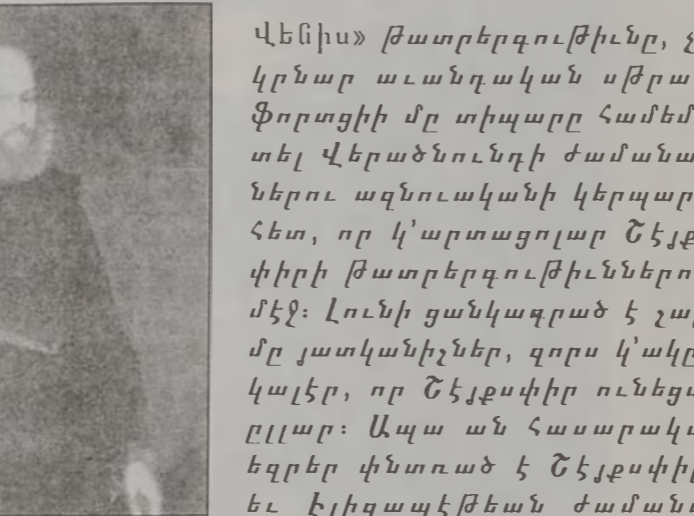 Վենիս» թատրերգութիւնը, չ
կրնար աւանդական սթրա
ֆորտցիի մը տիպարը համեմ
տել Վերածնունդի ժամանա
ներու ազնուականի կերպար
հետ, որ կ՚արտացոլար Շէյքս
փիրի թատրերգութիւններո
մէջ։ Լունի ցանկագրած է շար
մը յատկանիշներ, զորս կ՚ակը
կալէր, որ Շէյքսփիր ունեցա
ըլլար։ Ապա ան հասարակա
եզրեր փնտռած է Շէյքսփիր
եւ Էլիզապէթեան ժամանա